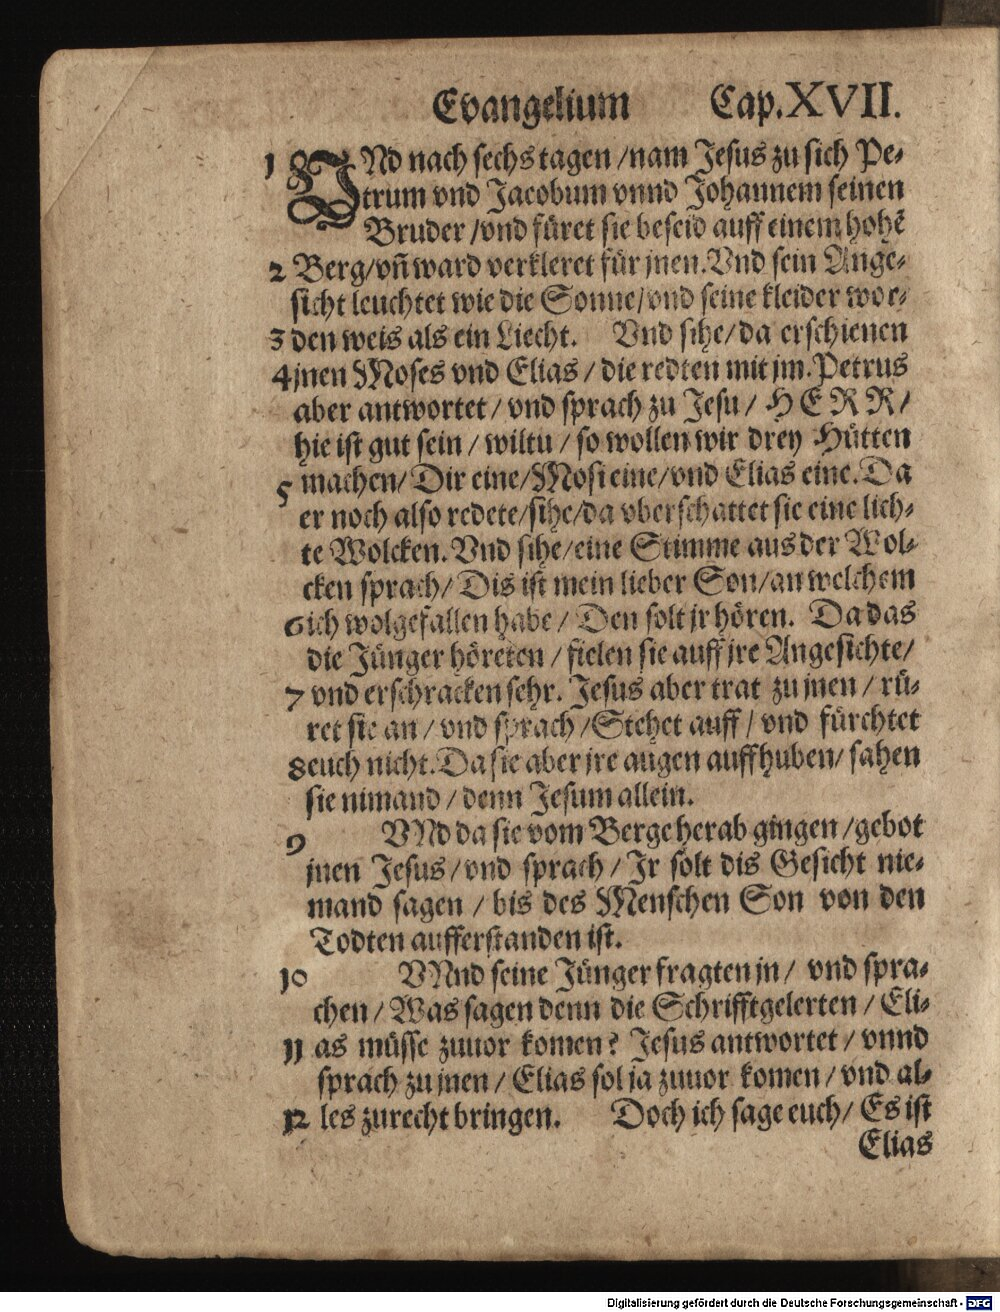 Evangelium Cap. XVII.
1 VNd nach sechs tagen / nam Jesus zu sich Pe-
trum vnd Jacobum vnnd Johannem seinen
Bruder / vnd füret sie beseid auff einem hohẽ
2 Berg / vñ ward verkleret für jnen. Vnd sein Ange-
sicht leuchtet wie die Sonne / vnd seine kleider wor-
3 den weis als ein Liecht. Vnd sihe / da erschienen
4 jnen Moses vnd Elias / die redten mit jm. Petrus
aber antwortet / vnd sprach zu Jesu / HERR /
hie ist gut sein / wiltu / so wollen wir drey Hütten
machen / Dir eine / Mosi eine / vnd Elias eine. Da
5 er noch also redete / sihe / da vberschattet sie eine lich-
te Wolcken. Vnd sihe / eine Stimme aus der Wol-
cken sprach / Dis ist mein lieber Son / an welchem
6 ich wolgefallen habe / Den solt jr hören. Da das
die Jünger höreten / fielen sie auff jre Angesichte /
7 vnd erschracken sehr. Jesus aber trat zu jnen / rü-
ret sie an / vnd sprach / Stehet auff / vnd fürchtet
8 euch nicht. Da sie aber jre augen auffhuben / sahen
sie nimand / denn Jesum allein.
9 VNd da sie vom Berge herab gingen / gebot
jnen Jesus / vnd sprach / Jr solt dis Gesicht nie-
mand sagen / bis des Menschen Son von den
Todten aufferstanden ist.
10 VNnd seine Jünger fragten jn / vnd spra-
chen / Was sagen denn die Schrifftgelerten / Eli-
11 as müsse zuuor komen? Jesus antwortet / vnnd
sprach zu jnen / Elias sol ja zuuor komen / vnd al-
12 les zurecht bringen. Doch ich sage euch / Es ist
Elias
Digitalisierung gefördert durch die Deutsche Forschungsgemeinschaft - DFG